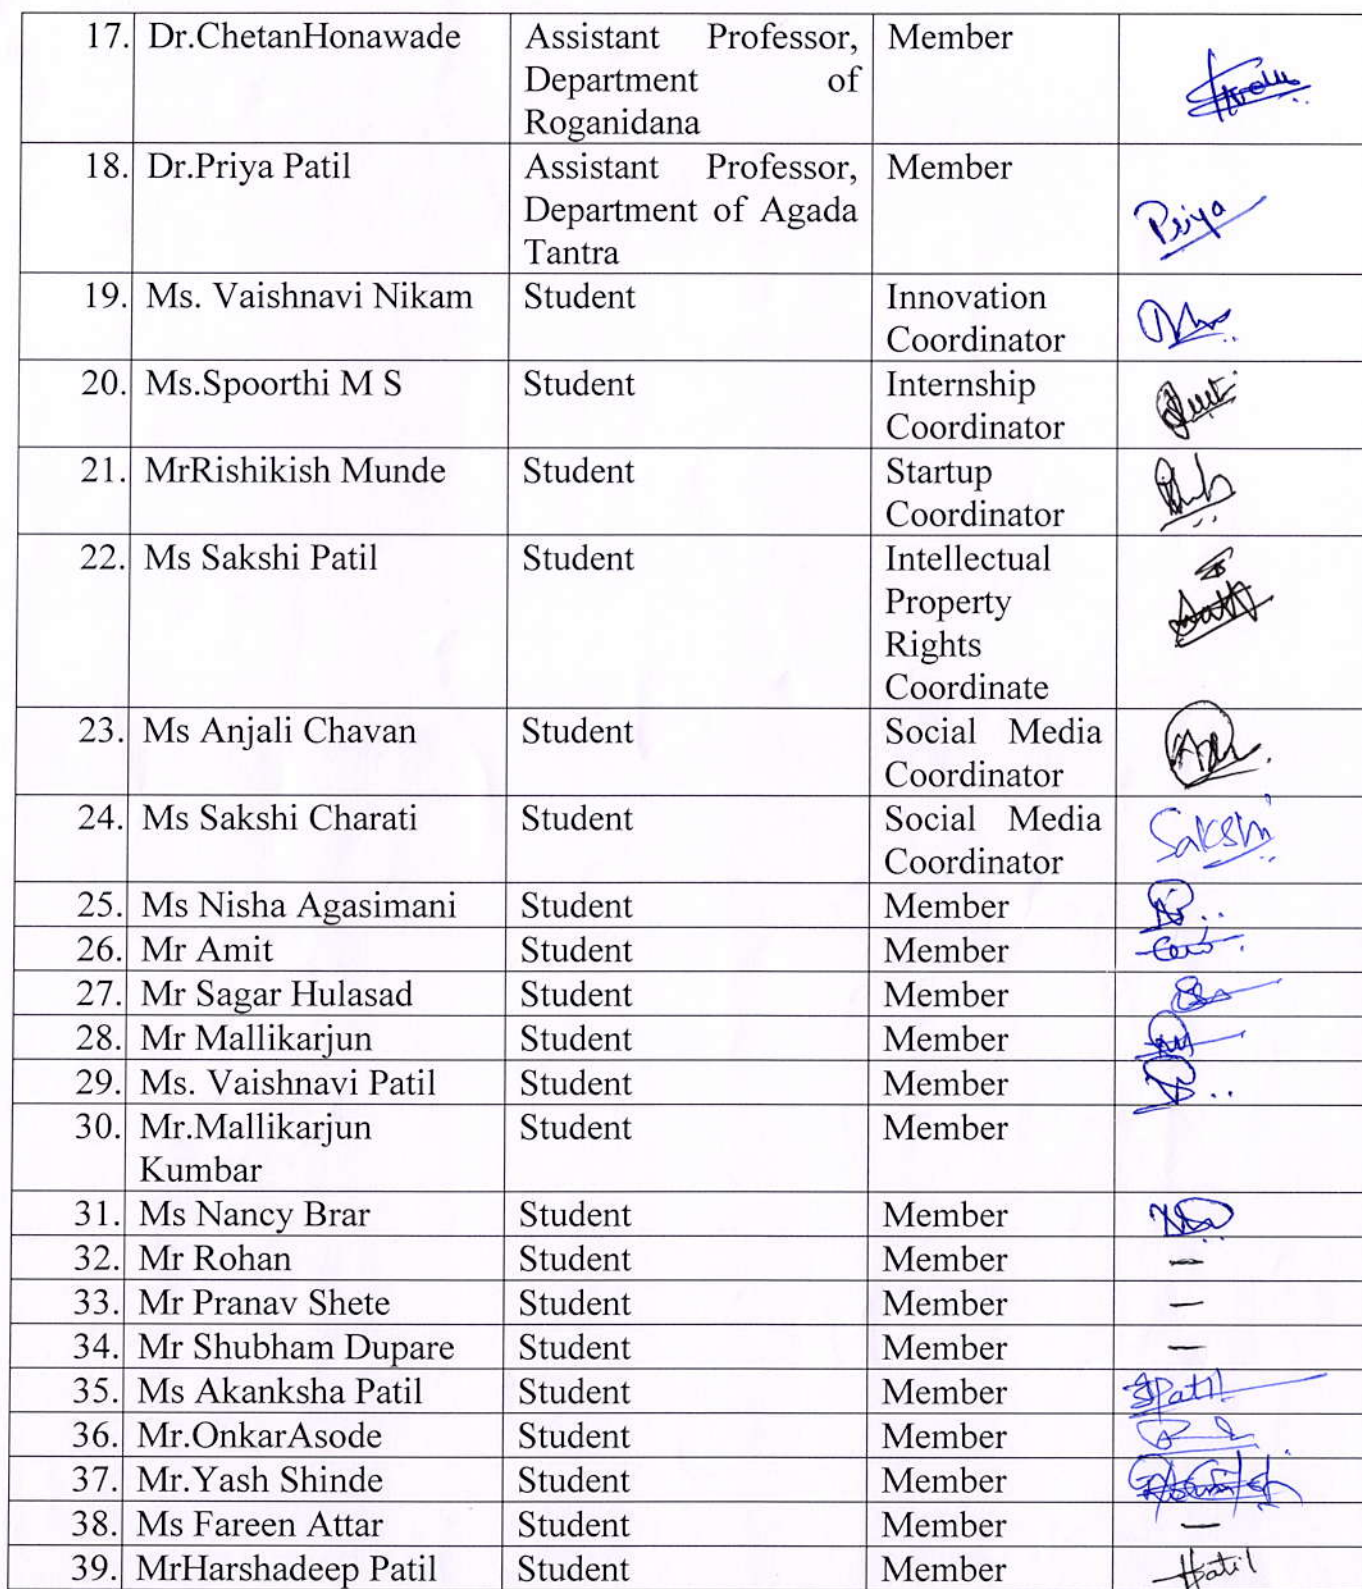 17. Dr.ChetanHonawade Assistant Professor, Member
Department of
Roganidana
18. Dr.Priya Patil Assistant Professor, Member
Department of Agada Priya
Tantra
19. Ms. Vaishnavi Nikam Student Innovation
Coordinator
20. Ms.Spoorthi M S Student Internship
Coordinator
21. MrRishikish Munde Student Startup
Coordinator
22. Ms Sakshi Patil Student Intellectual
Property
Rights
Coordinate
23. Ms Anjali Chavan Student Social Media
Coordinator
24. Ms Sakshi Charati Student Social Media Sakshi
Coordinator
25. Ms Nisha Agasimani Student Member
26. Mr Amit Student Member
27. Mr Sagar Hulasad Student Member
28. Mr Mallikarjun Student Member
29. Ms. Vaishnavi Patil Student Member
30. Mr.Mallikarjun Student Member
Kumbar
31. Ms Nancy Brar Student Member
32. Mr Rohan Student Member –
33. Mr Pranav Shete Student Member –
34. Mr Shubham Dupare Student Member –
35. Ms Akanksha Patil Student Member
36. Mr.OnkarAsode Student Member
37. Mr.Yash Shinde Student Member
38. Ms Fareen Attar Student Member –
39. MrHarshadeep Patil Student Member HPatil